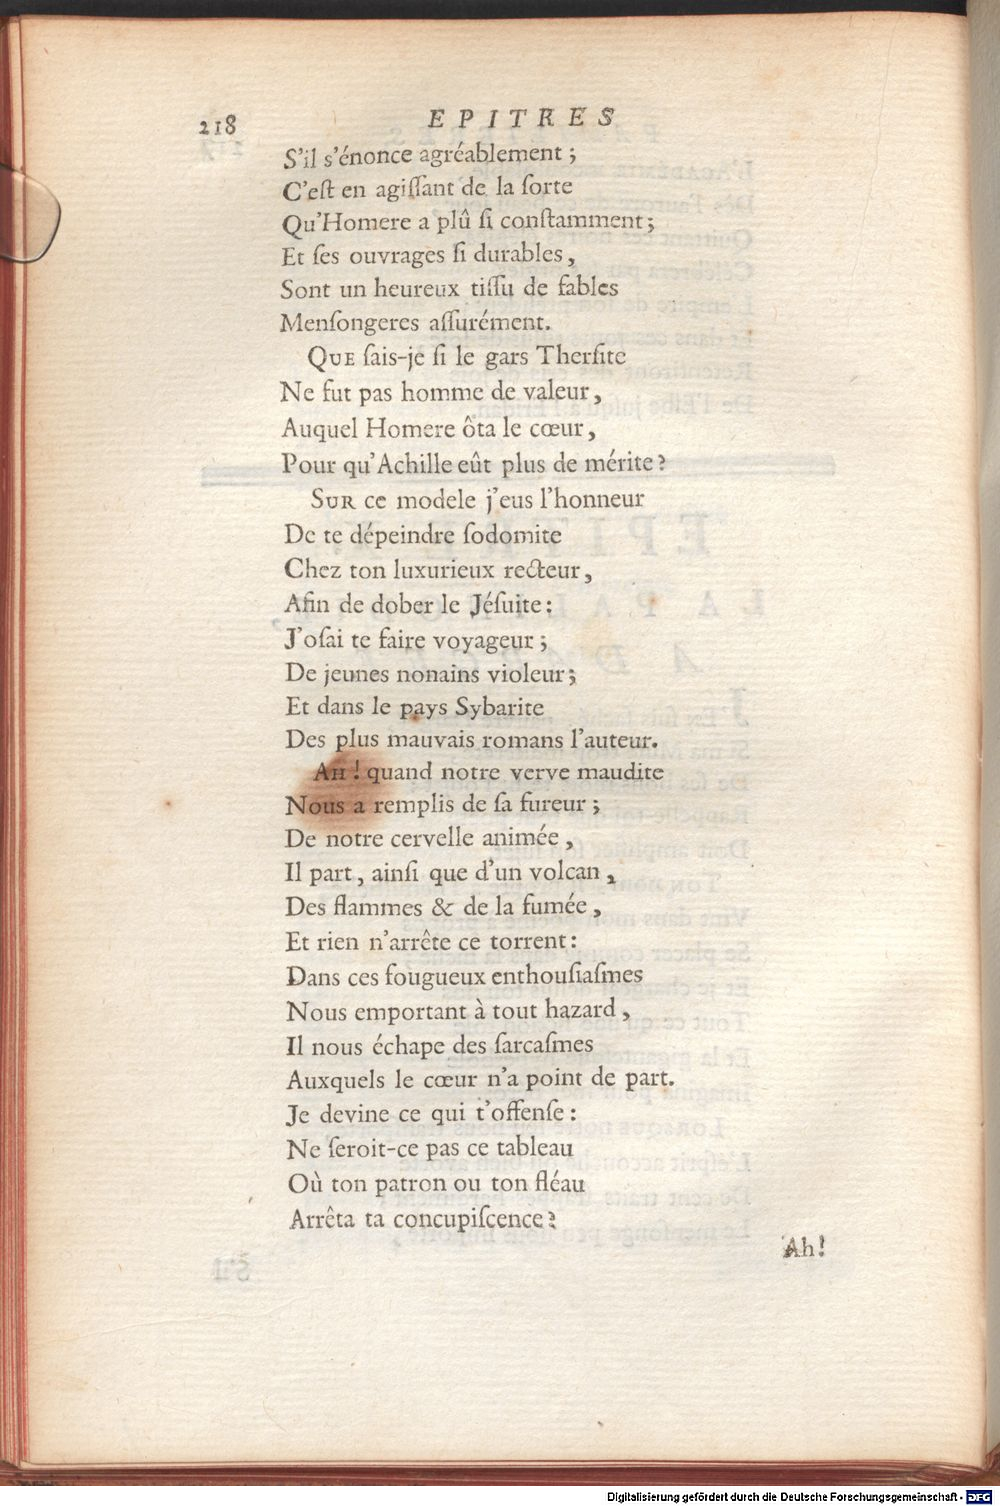 218 EPITRES
S'il s'énonce agréablement ;
C'eſt en agiſſant de la ſorte
Qu'Homere a plû ſi conſtamment ;
Et ſes ouvrages ſi durables ,
Sont un heureux tiſſu de fables
Menſongeres aſſurément.
QUE ſais-je ſi le gars Therſite
Ne fut pas homme de valeur ,
Auquel Homere ôta le cœur ,
Pour qu'Achille eût plus de mérite ?
SUR ce modele j'eus l'honneur
De te dépeindre ſodomite
Chez ton luxurieux recteur ,
Afin de dober le Jéſuite :
J'oſai te faire voyageur ;
De jeunes nonains violeur ;
Et dans le pays Sybarite
Des plus mauvais romans l'auteur.
AH ! quand notre verve maudite
Nous a remplis de ſa fureur ;
De notre cervelle animée ,
Il part , ainſi que d'un volcan ,
Des flammes & de la fumée ,
Et rien n'arrête ce torrent :
Dans ces fougueux enthouſiaſmes
Nous emportant à tout hazard ,
Il nous échape des ſarcaſmes
Auxquels le cœur n'a point de part.
Je devine ce qui t'offenſe :
Ne ſeroit-ce pas ce tableau
Où ton patron ou ton fléau
Arrêta ta concupiſcence ?
Ah !
Digitalisierung gefördert durch die Deutsche Forschungsgemeinschaft - DFG